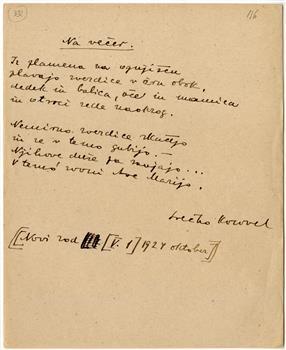 332
116
Na večer.
Iz plamena na ognjišču
plavajo zvezdice v črn obok,
dedek in babica, oče in mamica
in otroci sede naokrog.
Nemirno zvezdice
in se v temo gubijo. —
Njihove duše pa
V temò zvoni Ave Marija.
Srečko Kosovel
[[Novi rod [V. 1] 1924 oktober]]